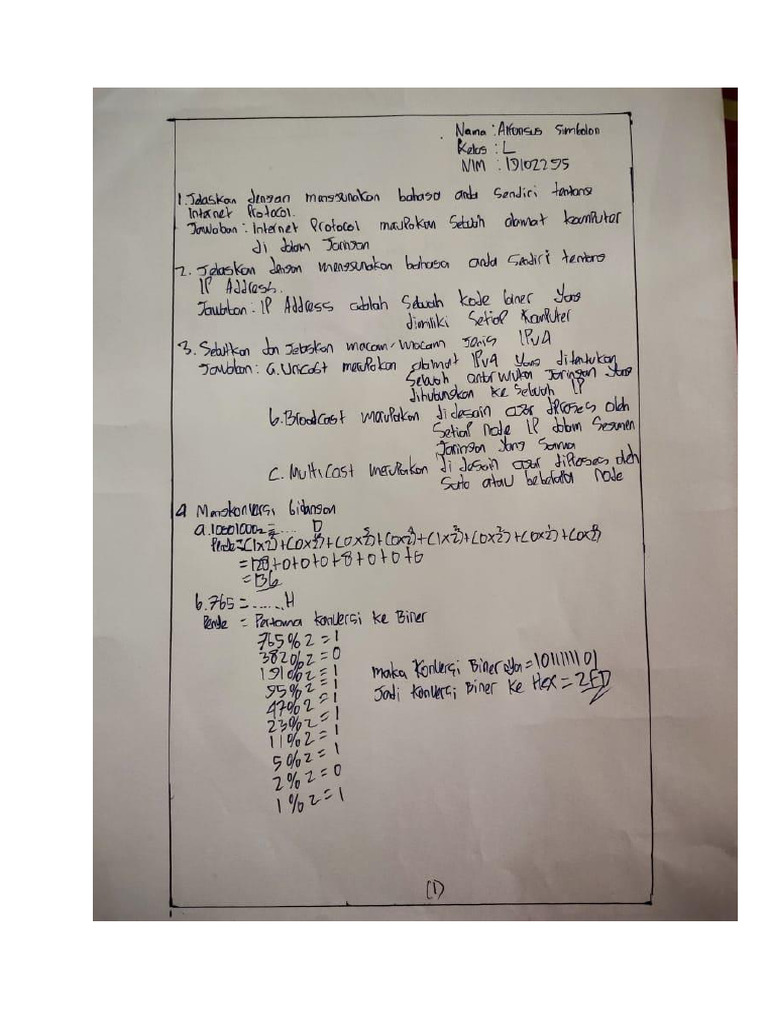 Nama : Alfonsus Simbolon
Kelas : L
NIM : 19102295
1. Jelaskan dengan menggunakan bahasa anda sendiri tentang
Internet Protocol.
Jawaban : Internet Protocol merupakan sebuah alamat komputer
di dalam Jaringan
2. Jelaskan dengan menggunakan bahasa anda sendiri tentang
IP Address.
Jawaban : IP Address adalah sebuah kode biner yang
dimiliki setiap komputer
3. Sebutkan dan Jelaskan macam-macam Jenis IPv4
Jawaban : a. Unicast merupakan alamat IPv4 yang ditentukan
sebuah antar muka Jaringan yang
dihubungkan ke sebuah IP
b. Broadcast merupakan di desain agar diproses oleh
setiap node IP dalam segmen
Jaringan yang sama
c. Multicast merupakan di desain agar diproses oleh
satu atau beberapa node
4 Mengkonversi bilangan
a. 10001000₂ = .... D
= 128+0+0+0+8+0+0+0
= 136
b. 765 = ...... H
= Pertama Konversi ke Biner
765%2=1
382%2=0
191%2=1
95%2=1
47%2=1
23%2=1
11%2=1
5%2=1
2%2=0
1%2=1
Maka Konversi Binernya = 1011111101
Jadi Konversi Biner ke Hex = 2FD
(1)